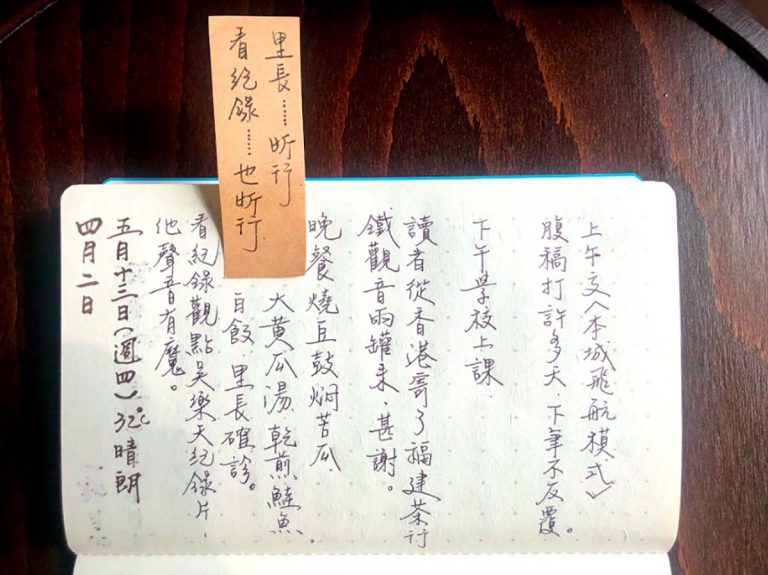 里長……昕行
看紀錄……也昕行
上午交〈本城飛航模式〉
腹稿打許多天、下筆不反覆。
下午學校上課
讀者從香港寄了福建茶行
鐵觀音兩罐来,甚謝。
晚餐燒豆鼓焖苦瓜
大黃瓜湯、乾煎鮭魚.
白飯.里長確診。
看紀錄觀點吳樂天紀錄片,
他聲音有魔。
五月十三日(週四)32℃晴朗
四月二日